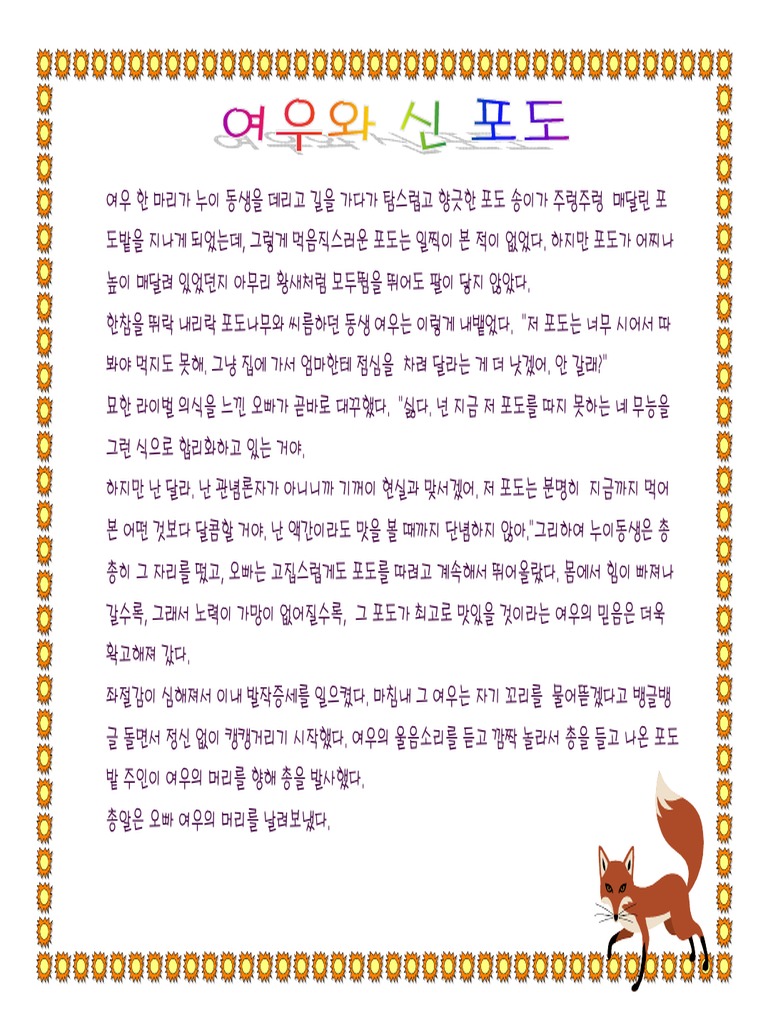 여우와 신 포도
여우 한 마리가 누이 동생을 데리고 길을 가다가 탐스럽고 향긋한 포도 송이가 주렁주렁 매달린 포
도밭을 지나게 되었는데, 그렇게 먹음직스러운 포도는 일찍이 본 적이 없었다. 하지만 포도가 어찌나
높이 매달려 있었던지 아무리 황새처럼 모두뜀을 뛰어도 팔이 닿지 않았다.
한참을 뛰락 내리락 포도나무와 씨름하던 동생 여우는 이렇게 내뱉었다. "저 포도는 너무 시어서 따
봐야 먹지도 못해. 그냥 집에 가서 엄마한테 점심을 차려 달라는 게 더 낫겠어. 안 갈래?"
묘한 라이벌 의식을 느낀 오빠가 곧바로 대꾸했다. "싫다. 넌 지금 저 포도를 따지 못하는 네 무능을
그런 식으로 합리화하고 있는 거야.
하지만 난 달라. 난 관념론자가 아니니까 기꺼이 현실과 맞서겠어. 저 포도는 분명히 지금까지 먹어
본 어떤 것보다 달콤할 거야. 난 액간이라도 맛을 볼 때까지 단념하지 않아."그리하여 누이동생은 총
총히 그 자리를 떴고, 오빠는 고집스럽게도 포도를 따려고 계속해서 뛰어올랐다. 몸에서 힘이 빠져나
갈수록, 그래서 노력이 가망이 없어질수록, 그 포도가 최고로 맛있을 것이라는 여우의 믿음은 더욱
확고해져 갔다.
좌절감이 심해져서 이내 발작증세를 일으켰다. 마침내 그 여우는 자기 꼬리를 물어뜯겠다고 뱅글뱅
글 돌면서 정신 없이 캥캥거리기 시작했다. 여우의 울음소리를 듣고 깜짝 놀라서 총을 들고 나온 포도
밭 주인이 여우의 머리를 향해 총을 발사했다.
총알은 오빠 여우의 머리를 날려보냈다.